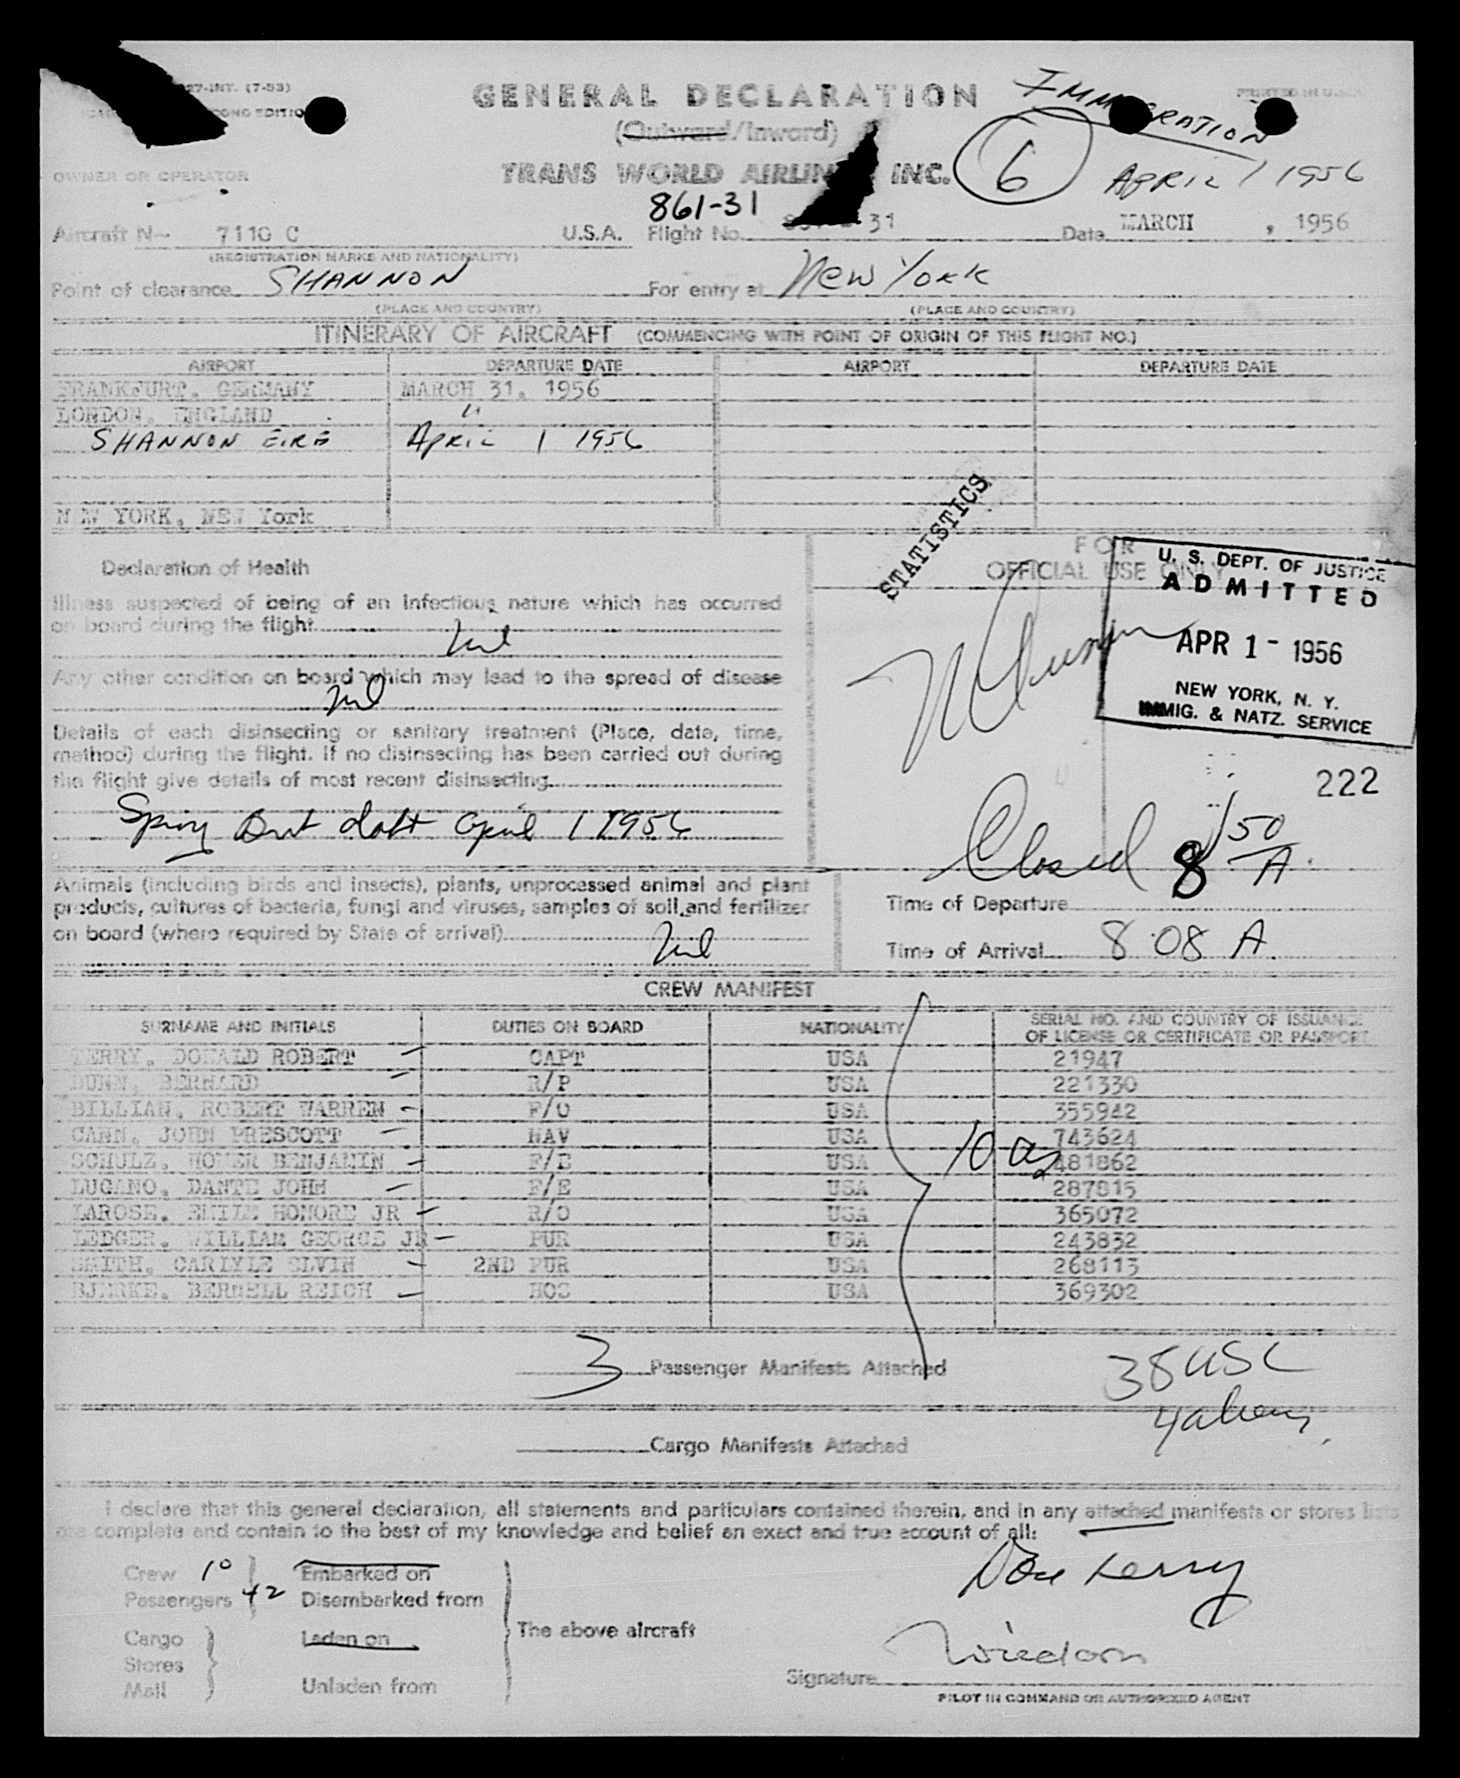 27-INT. (7-53)
GENERAL DECLARATION
IMMIGRATION
PRINTED IN U.S.A.
(Outward/Inward)
6
OWNER OR OPERATOR
TRANS WORLD AIRLINES INC.
APRIL 1 1956
861-31
Aircraft N- 7110 C U.S.A. Flight No. 31 Date MARCH , 1956
(REGISTRATION MARKS AND NATIONALITY)
Point of clearance SHANNON For entry at New York
(PLACE AND COUNTRY) (PLACE AND COUNTRY)
ITINERARY OF AIRCRAFT (COMMENCING WITH POINT OF ORIGIN OF THIS FLIGHT NO.)
AIRPORT DEPARTURE DATE AIRPORT DEPARTURE DATE
FRANKFURT, GERMANY MARCH 31, 1956
LONDON, ENGLAND "
SHANNON EIRE APRIL 1 1956
NEW YORK, NEW York
STATISTICS
FOR
OFFICIAL USE ONLY
U. S. DEPT. OF JUSTICE
ADMITTED
APR 1 - 1956
NEW YORK, N. Y.
IMMIG. & NATZ. SERVICE
222
Declaration of Health
Illness suspected of being of an infectious nature which has occurred
on board during the flight Nil
Any other condition on board which may lead to the spread of disease
Nil
Details of each disinsecting or sanitary treatment (Place, date, time,
method) during the flight. If no disinsecting has been carried out during
the flight give details of most recent disinsecting
April 1 1956
Closed 8 50 A.
Animals (including birds and insects), plants, unprocessed animal and plant
products, cultures of bacteria, fungi and viruses, samples of soil and fertilizer
on board (where required by State of arrival) Nil
Time of Departure
Time of Arrival 8 08 A.
CREW MANIFEST
SURNAME AND INITIALS DUTIES ON BOARD NATIONALITY SERIAL NO. AND COUNTRY OF ISSUANCE
OF LICENSE OR CERTIFICATE OR PASSPORT
TERRY, DONALD ROBERT CAPT USA 21947
DUNN, BERNARD R/P USA 221330
BILLIAN, ROBERT WARREN F/O USA 355942
CANN, JOHN PRESCOTT NAV USA 743624
SCHULZ, HOMER BENJAMIN F/E USA 481862
LUGANO, DANTE JOHN F/E USA 287815
LAROSE, EMILE HONORE JR R/O USA 365072
LEDGER, WILLIAM GEORGE JR PUR USA 243832
SMITH, CARLYLE ELVIN 2ND PUR USA 268113
BJERKE, BERNELL REICH HOS USA 369302
10
3 Passenger Manifests Attached
38 USC
4 aliens
Cargo Manifests Attached
I declare that this general declaration, all statements and particulars contained therein, and in any attached manifests or stores lists
are complete and contain to the best of my knowledge and belief an exact and true account of all:
Crew 10 Embarked on
Passengers 42 Disembarked from
Cargo Laden on The above aircraft
Stores
Mail Unladen from
Don Terry
Signature
PILOT IN COMMAND OR AUTHORIZED AGENT